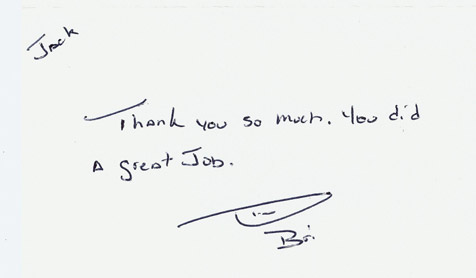 Jack
Thank you so much. You did
a great Job.